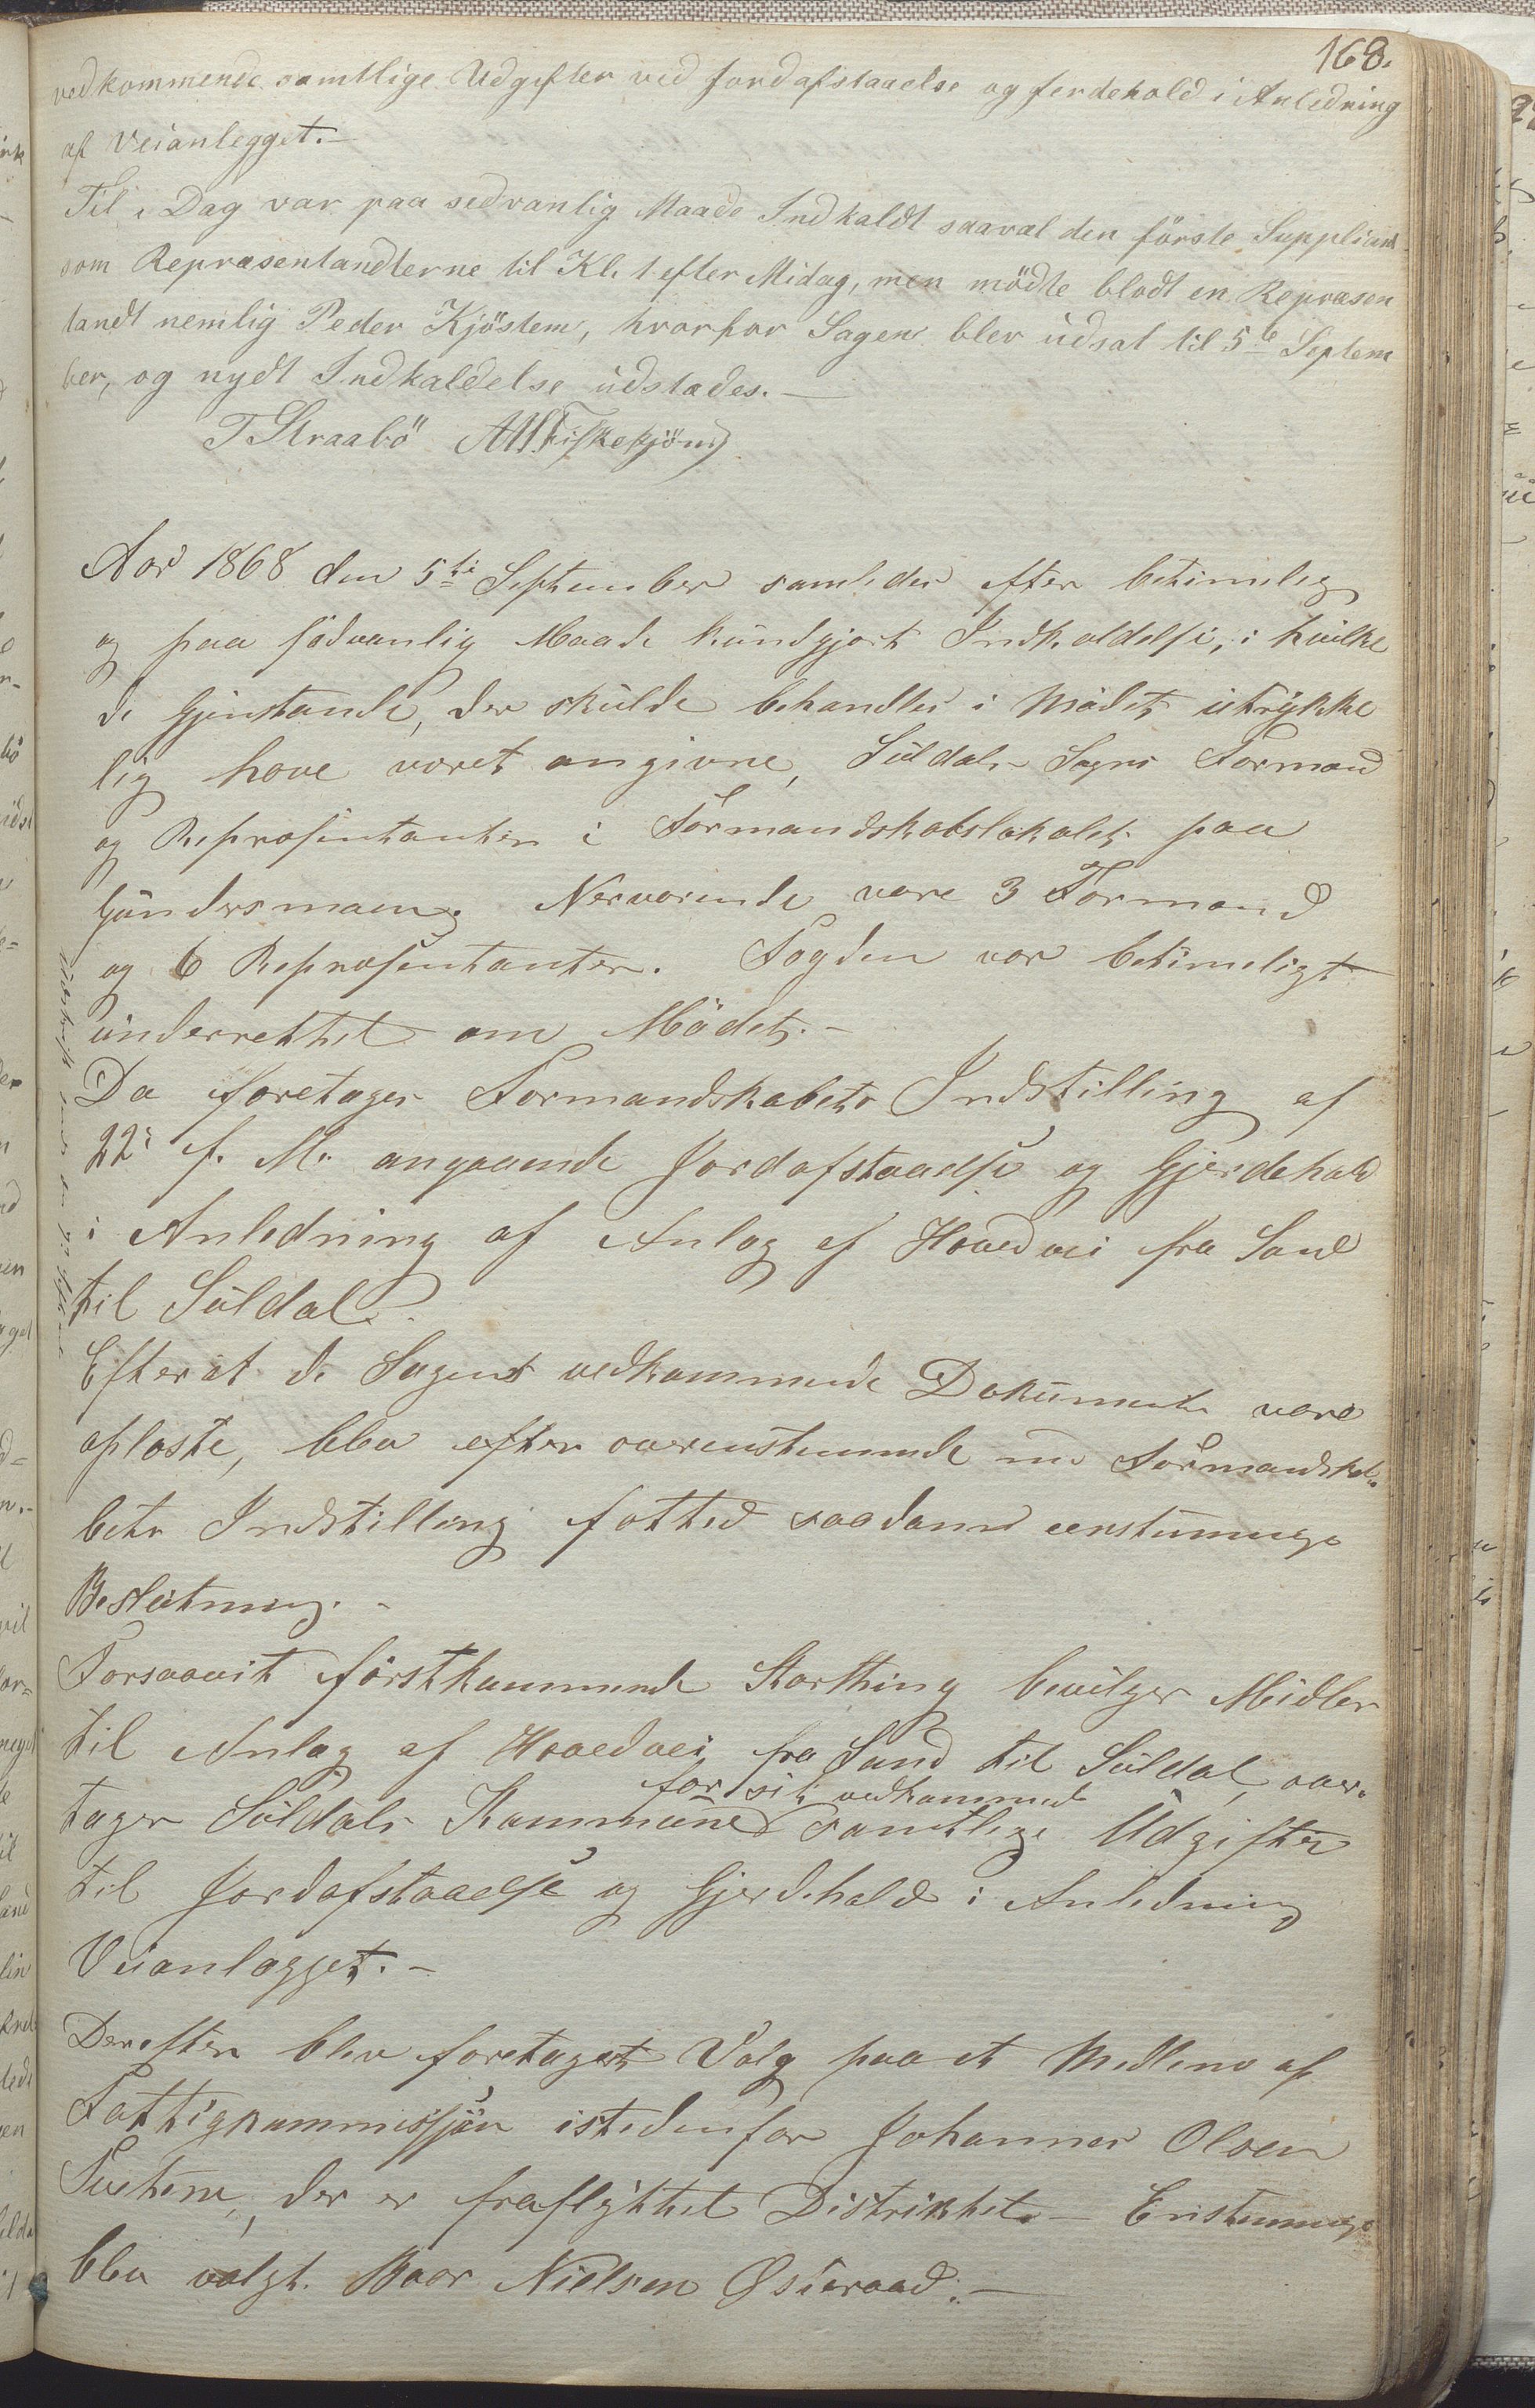 168.
vedkommende samtlige Udgifter ved Jordafstaaelse og ferdehold i Anledning
af Veianlegget.-
Til i Dag var paa sedvanlig Maade Indkaldt saavæl den förste Suppliant
som Repræsentandterne til Kl. 1 efter Midag, men mödte blodt en Repræsen
tandt nemlig Peder Kjöstem, hvorfor Sagen blev udsat til 5te Septem
ber, og nydt Indkaldelse udstædes.-
T Straabö
Aar 1868 den 5te September samledes efter betimelig
og paa sædvanlig Maade kundgjort Indkaldelse, i hvilke
de Gjenstande, der skulde behandles i Mödet, utrykke
lig have været angivne, Suldals Sogns Formænd
og Repræsentanter i Formandskabslokalet paa
Nerværende vare 3 Formænd
og 6 Repræsentanter. Fogden var betimeligt
underrettet om Mödet.-
Da foretages Formandskabets Indstilling af
22de f. M. angaaende Jordafstaaelse og Gjerdehold
i Anledning af Anlæg af Hovedvei fra Sand
til Suldal.
Efterat de Sagens vedkommende Dokumenter vare
oplæste, blev efter overenstemmende med Formandska
bets Indstilling fattet saadann eenstemmige
Beslutning.-
Forsaavit förstkommende Storthing bevilger Midler
til Anlæg af Hovedvei fra Sand til Suldal, over-
for sit vedkommende
tager Suldals Kommune samtlige Udgifter
til Jordafstaaelse og Gjerdehold i Anledning
Veianlægget.-
Derefter blev foretaget Valg paa et Medlem af
Fattigkommissjön istedenfor Johannes Olsen
der er fraflyttet Distriktet.- Enstemmige
blev valgt. Baar Nielsen Østeraad.-